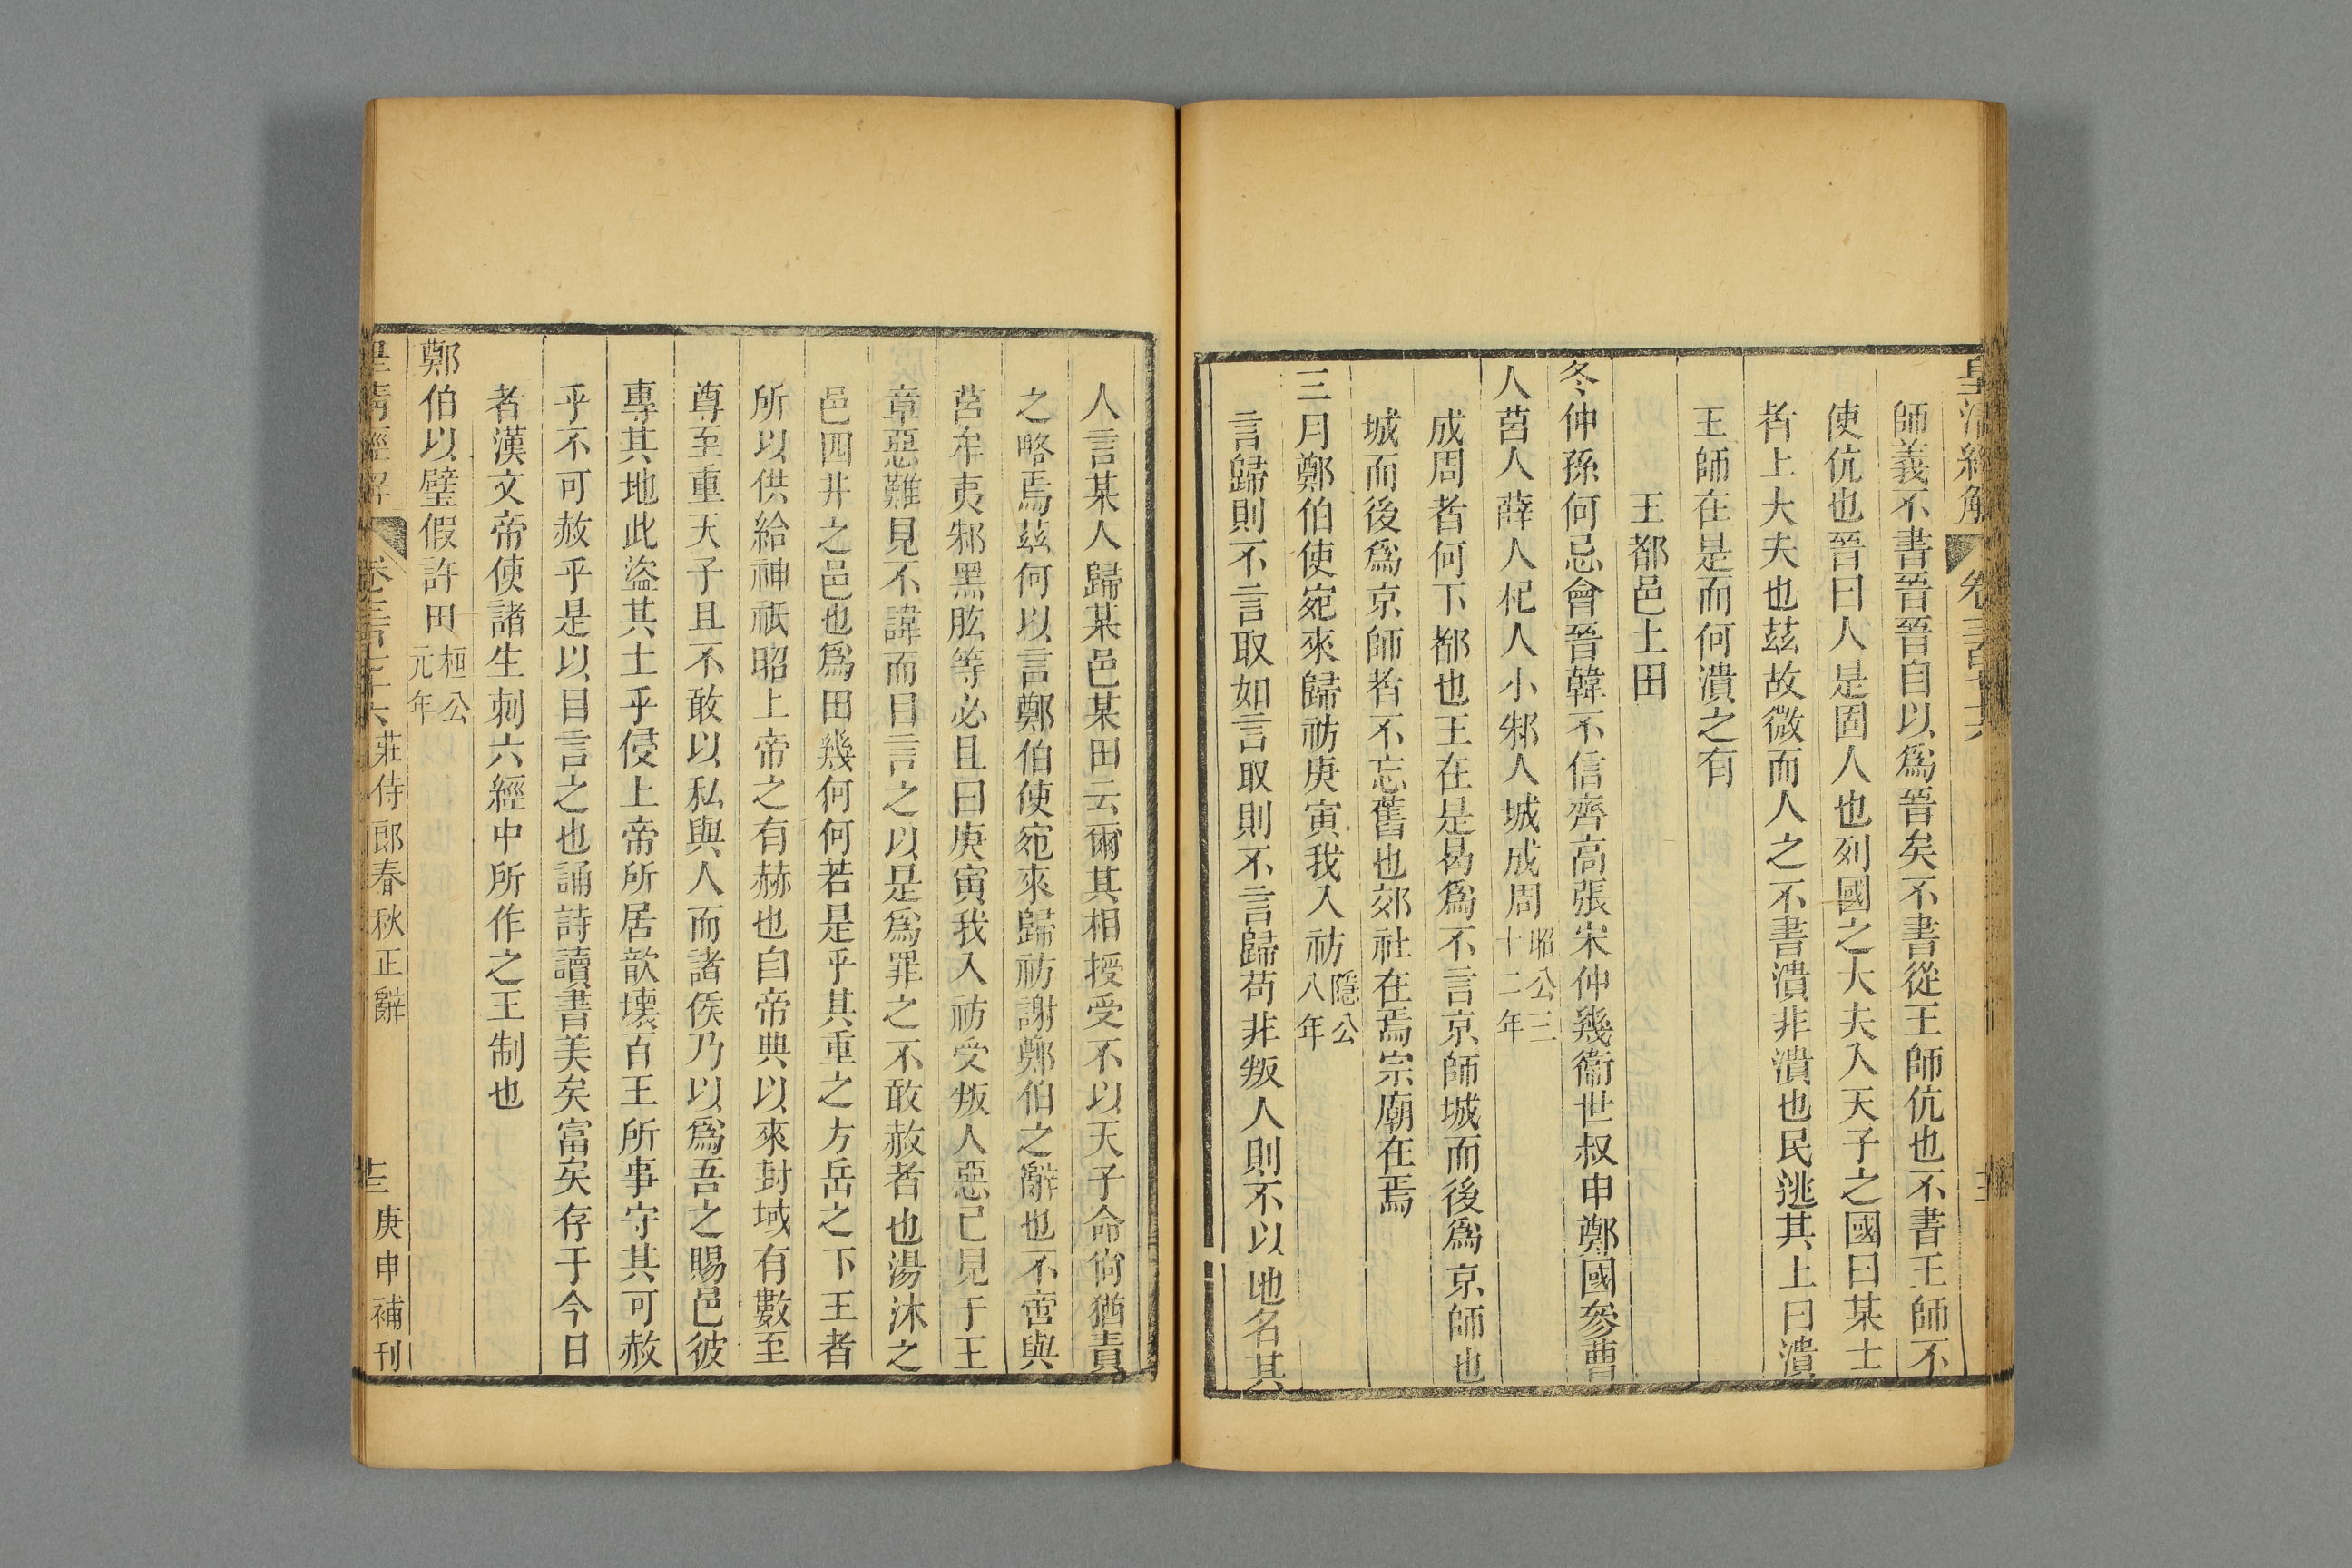 皇清經解 卷三百七十六
師義不書晉晉自以爲晉矣不書從王師伉也不書王師不
使伉也晉曰人是固人也列國之大夫入天子之國曰某士
者上大夫也茲故微而人之不書潰非潰也民逃其上曰潰
王師在是而何潰之有
王都邑土田
冬仲孫何忌會晉韓不信齊高張宋仲幾衞世叔申鄭國參曹
人莒人薛人杞人小邾人城成周昭公三十二年
成周者何下都也王在是曷爲不言京師城而後爲京師也
城而後爲京師者不忘舊也郊社在焉宗廟在焉
三月鄭伯使宛來歸祊庚寅我入祊隱公八年
言歸則不言取如言取則不言歸苟非叛人則不以地名其
人言某人歸某邑某田云爾其相授受不以天子命尙猶責
之略焉茲何以言鄭伯使宛來歸祊謝鄭伯之辭也不啻與
莒牟夷邾黑肱等必且曰庚寅我入祊受叛人惡已見于王
章惡難見不諱而目言之以是爲罪之不敢赦者也湯沐之
邑四井之邑也爲田幾何何若是乎其重之方岳之下王者
所以供給神祇昭上帝之有赫也自帝典以來封域有數至
尊至重天子且不敢以私與人而諸侯乃以爲吾之賜邑彼
專其地此盜其土乎侵上帝所居歆壞百王所事守其可赦
乎不可赦乎是以目言之也誦詩讀書美矣富矣存于今日
者漢文帝使諸生刺六經中所作之王制也
鄭伯以璧假許田桓公元年
皇清經解 卷三百七十六 莊侍郎春秋正辭 十三 庚申補刊